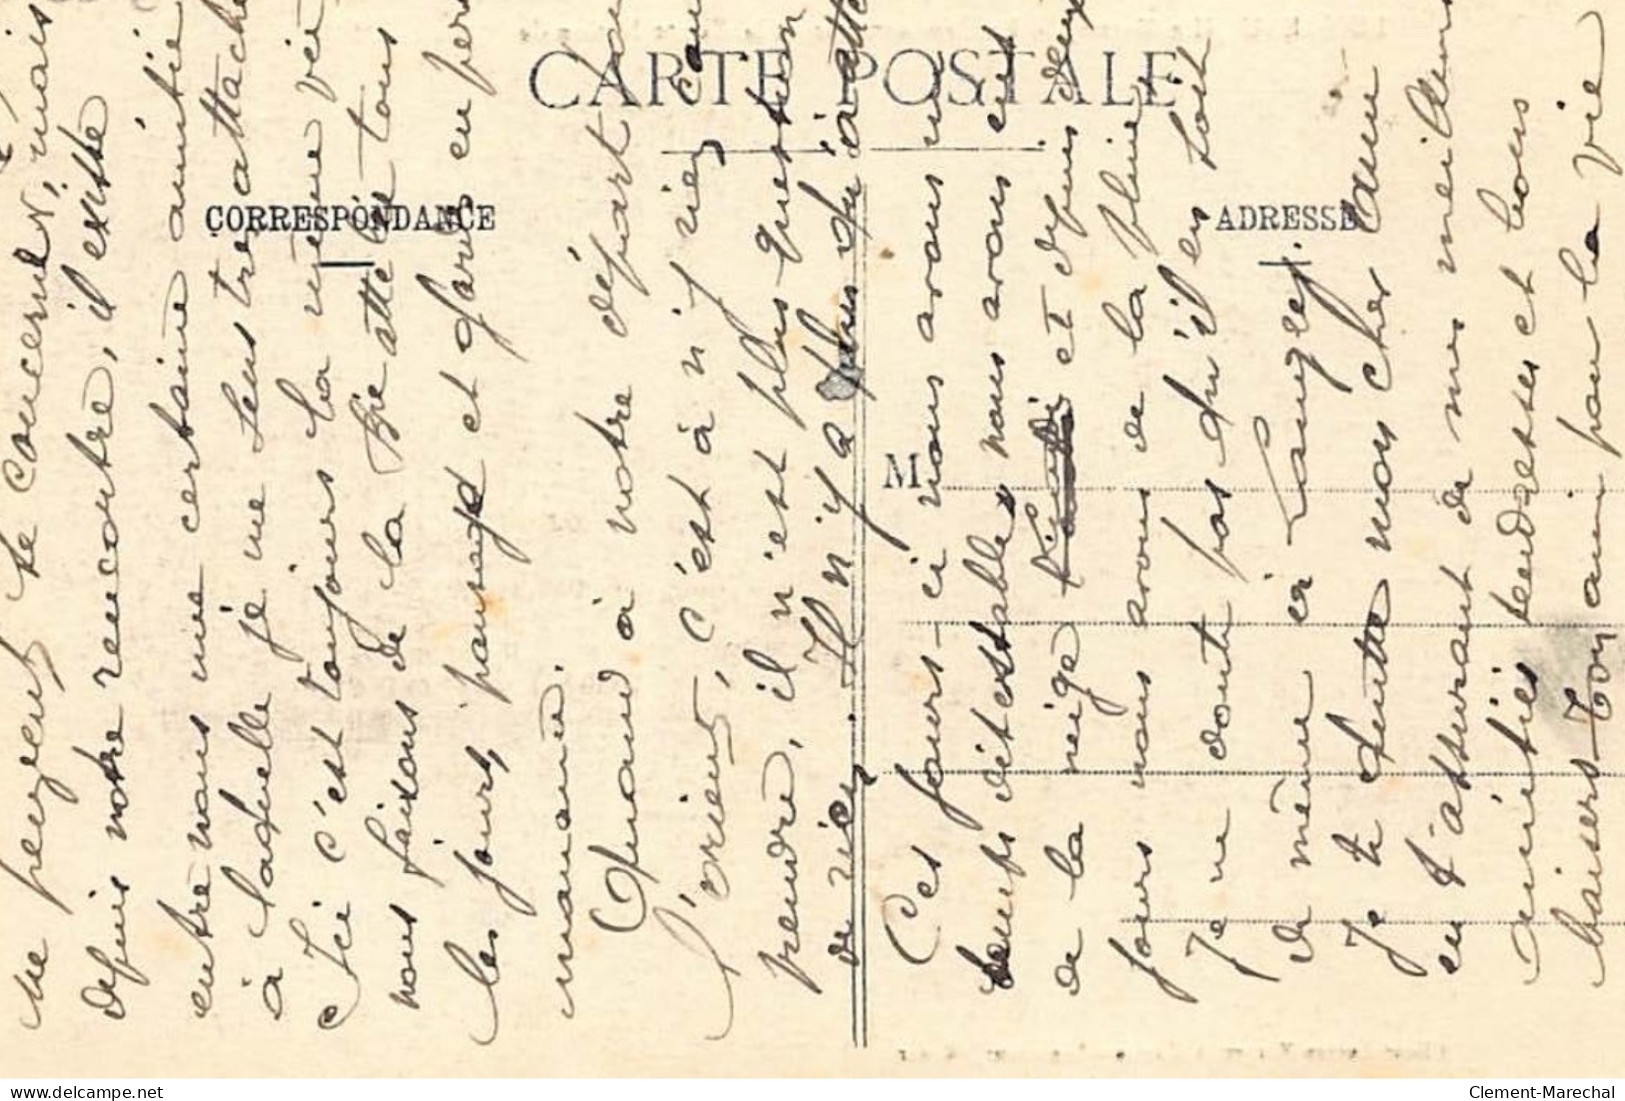 CARTE POSTALE
CORRESPONDANCE
ADRESSE
M
me peuvent te concerner, mais
depuis notre rencontre, il existe
entre nous une certaine amitié
à laquelle je me sens très attaché
Ici c'est toujours la même vie
nous faisons de la Bie atte lé tous
les jours, pansage et gares en per
manence.
Quand à notre départ pour
l'orient, c'est à n'y rien com
prendre, il n'est plus question
de rien. Il n'y a plus qu'à atte
Ces jours-ci nous avons un
temps détestable, nous avons eut
de la neige et depuis deux
jours nous avons de la pluie.
Je ne doute pas qu'il en soit
de même à Langres.
Je te quitte mon cher ami
en t'assurant de mes meilleures
amitiés tendresses et bons
baisers Ton ami pour la vie
delcampe.net
Clement-Marechal